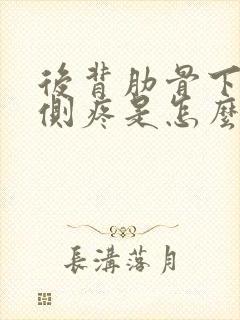 後背肋骨下
側疼是怎麼
長溝落月